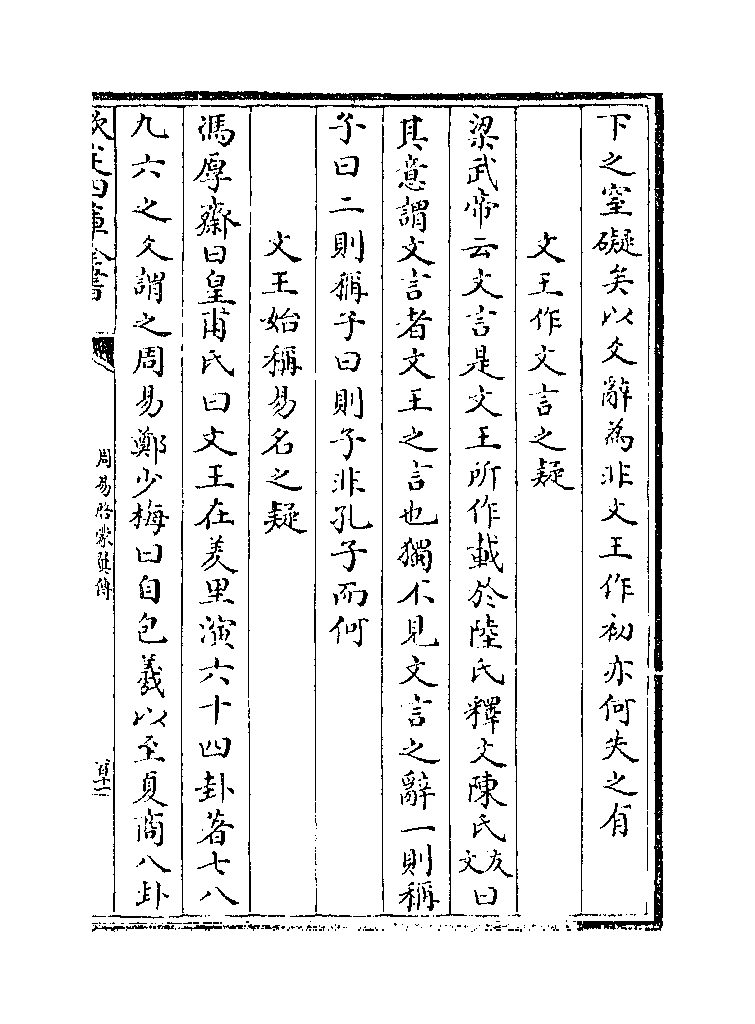 下之窒礙矣以爻辭為非文王作初亦何失之有
文王作文言之疑
梁武帝云文言是文王所作載於陸氏釋文陳氏友文曰
其意謂文言者文王之言也獨不見文言之辭一則稱
子曰二則稱子曰則子非孔子而何
文王始稱易名之疑
馮厚齋曰皇甫氏曰文王在羑里演六十四卦著七八
九六之爻謂之周易鄭少梅曰自包羲以至夏商八卦
欽定四庫全書
周易啓蒙翼傳